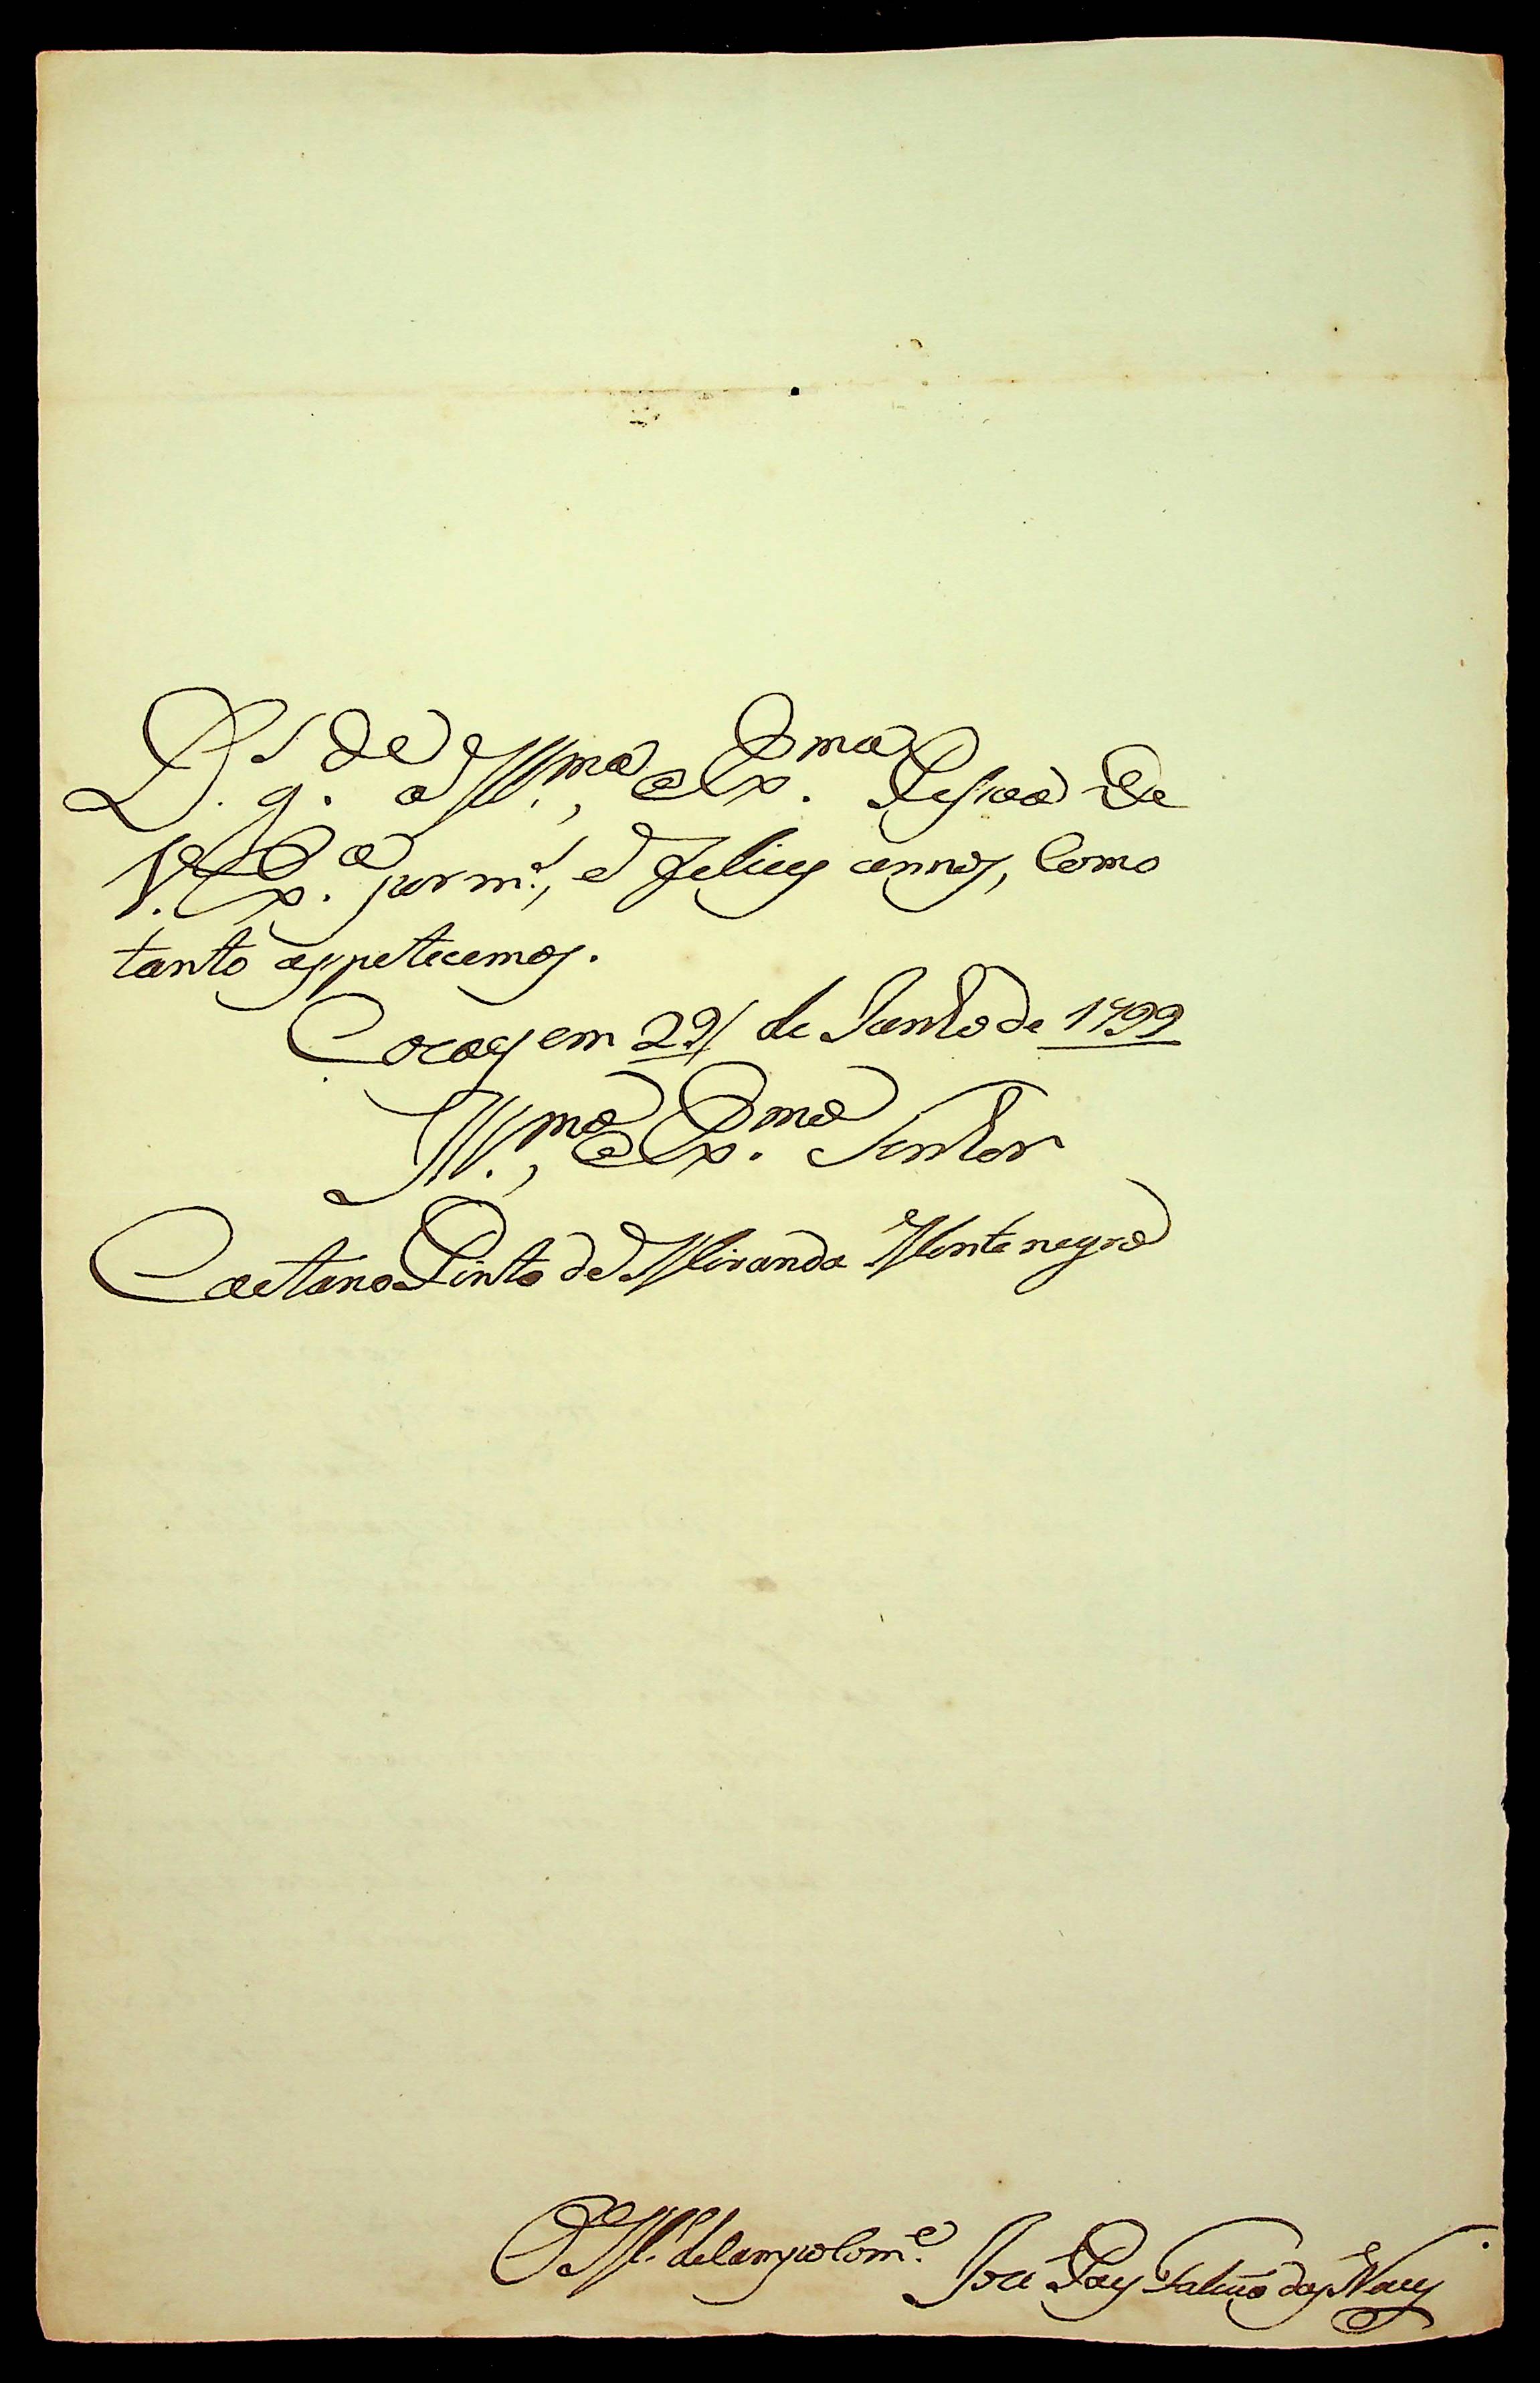 D.s g.de a Ill.ma, e Ex.ma Pessoa de
V. Ex.a por m.s, e felices annos, como
tanto appetecemos.
Cocaes em 29 de Junho de 1799
Ill.mo, e Ex.mo Senhor
Caetano Pinto de Miranda Montenegro
O M.e de Campo Com.e Joze Paes Falcaõ das Neves